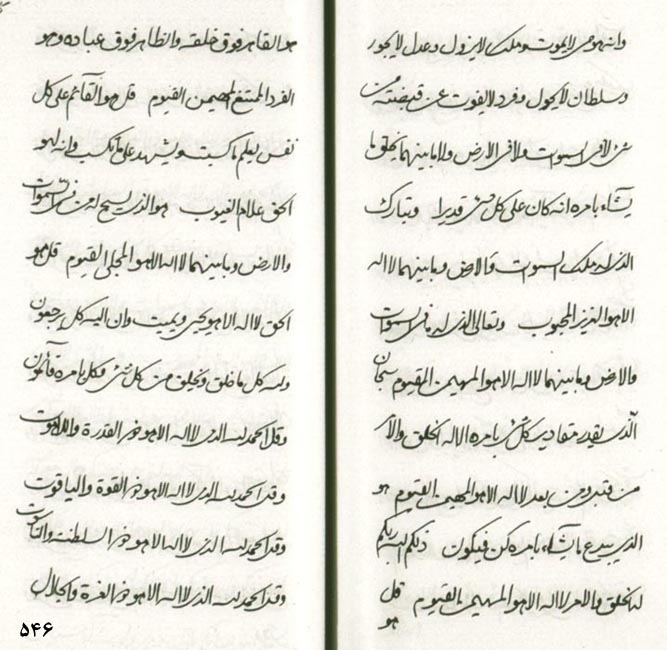 وانه هو حی لایموت وملک لایزول وعدل لایجور
وسلطان لایحول وفرد لایفوت عن قبضته من
شئ لا فی السموت ولا فی الارض ولا ما بینهما یخلق ما
یشاء بامره انه کان علی کل شئ قدیرا وتبارک
الذی له ملک السموت والارض وما بینهما لا اله
الا هو العزیز المحبوب وتعالی الذی له ما فی السموات
والارض وما بینهما لا اله الا هو المهیمن القیوم سبحان
الذی یقدر مقادیر کل شئ بامره الا له الخلق والامر
من قبل ومن بعد لا اله الا هو المهیمن القیوم هو
الذی یبدع ما یشاء بامره کن فیکون ذلکم الله ربکم
له الخلق والامر لا اله الا هو المهیمن القیوم قل هو
هو القاهر فوق خلقه والظاهر فوق عباده وهو
الفرد الممتنع المهیمن القیوم قل هو القائم علی کل
نفس یعلم ما کسبت ویشهد علی ما تکسب وانه لهو
الحق علام الغیوب هو الذی یسبح له من فی السموات
والارض وما بینهما لا اله الا هو المجلی القیوم قل هو
الحق لا اله الا هو یحیی ویمیت وان الیه کل یرجعون
وله کل ما خلق ویخلق من کل شئ وکل بامره قائمون
وقل الحمد لله الذی لا اله الا هو ذی القدرة واللاهوت
وقل الحمد لله الذی لا اله الا هو ذی القوة والیاقوت
وقل الحمد لله الذی لا اله الا هو ذی السلطنة والناسوت
وقل الحمد لله الذی لا اله الا هو ذی العزة والجلال
۵۴۶